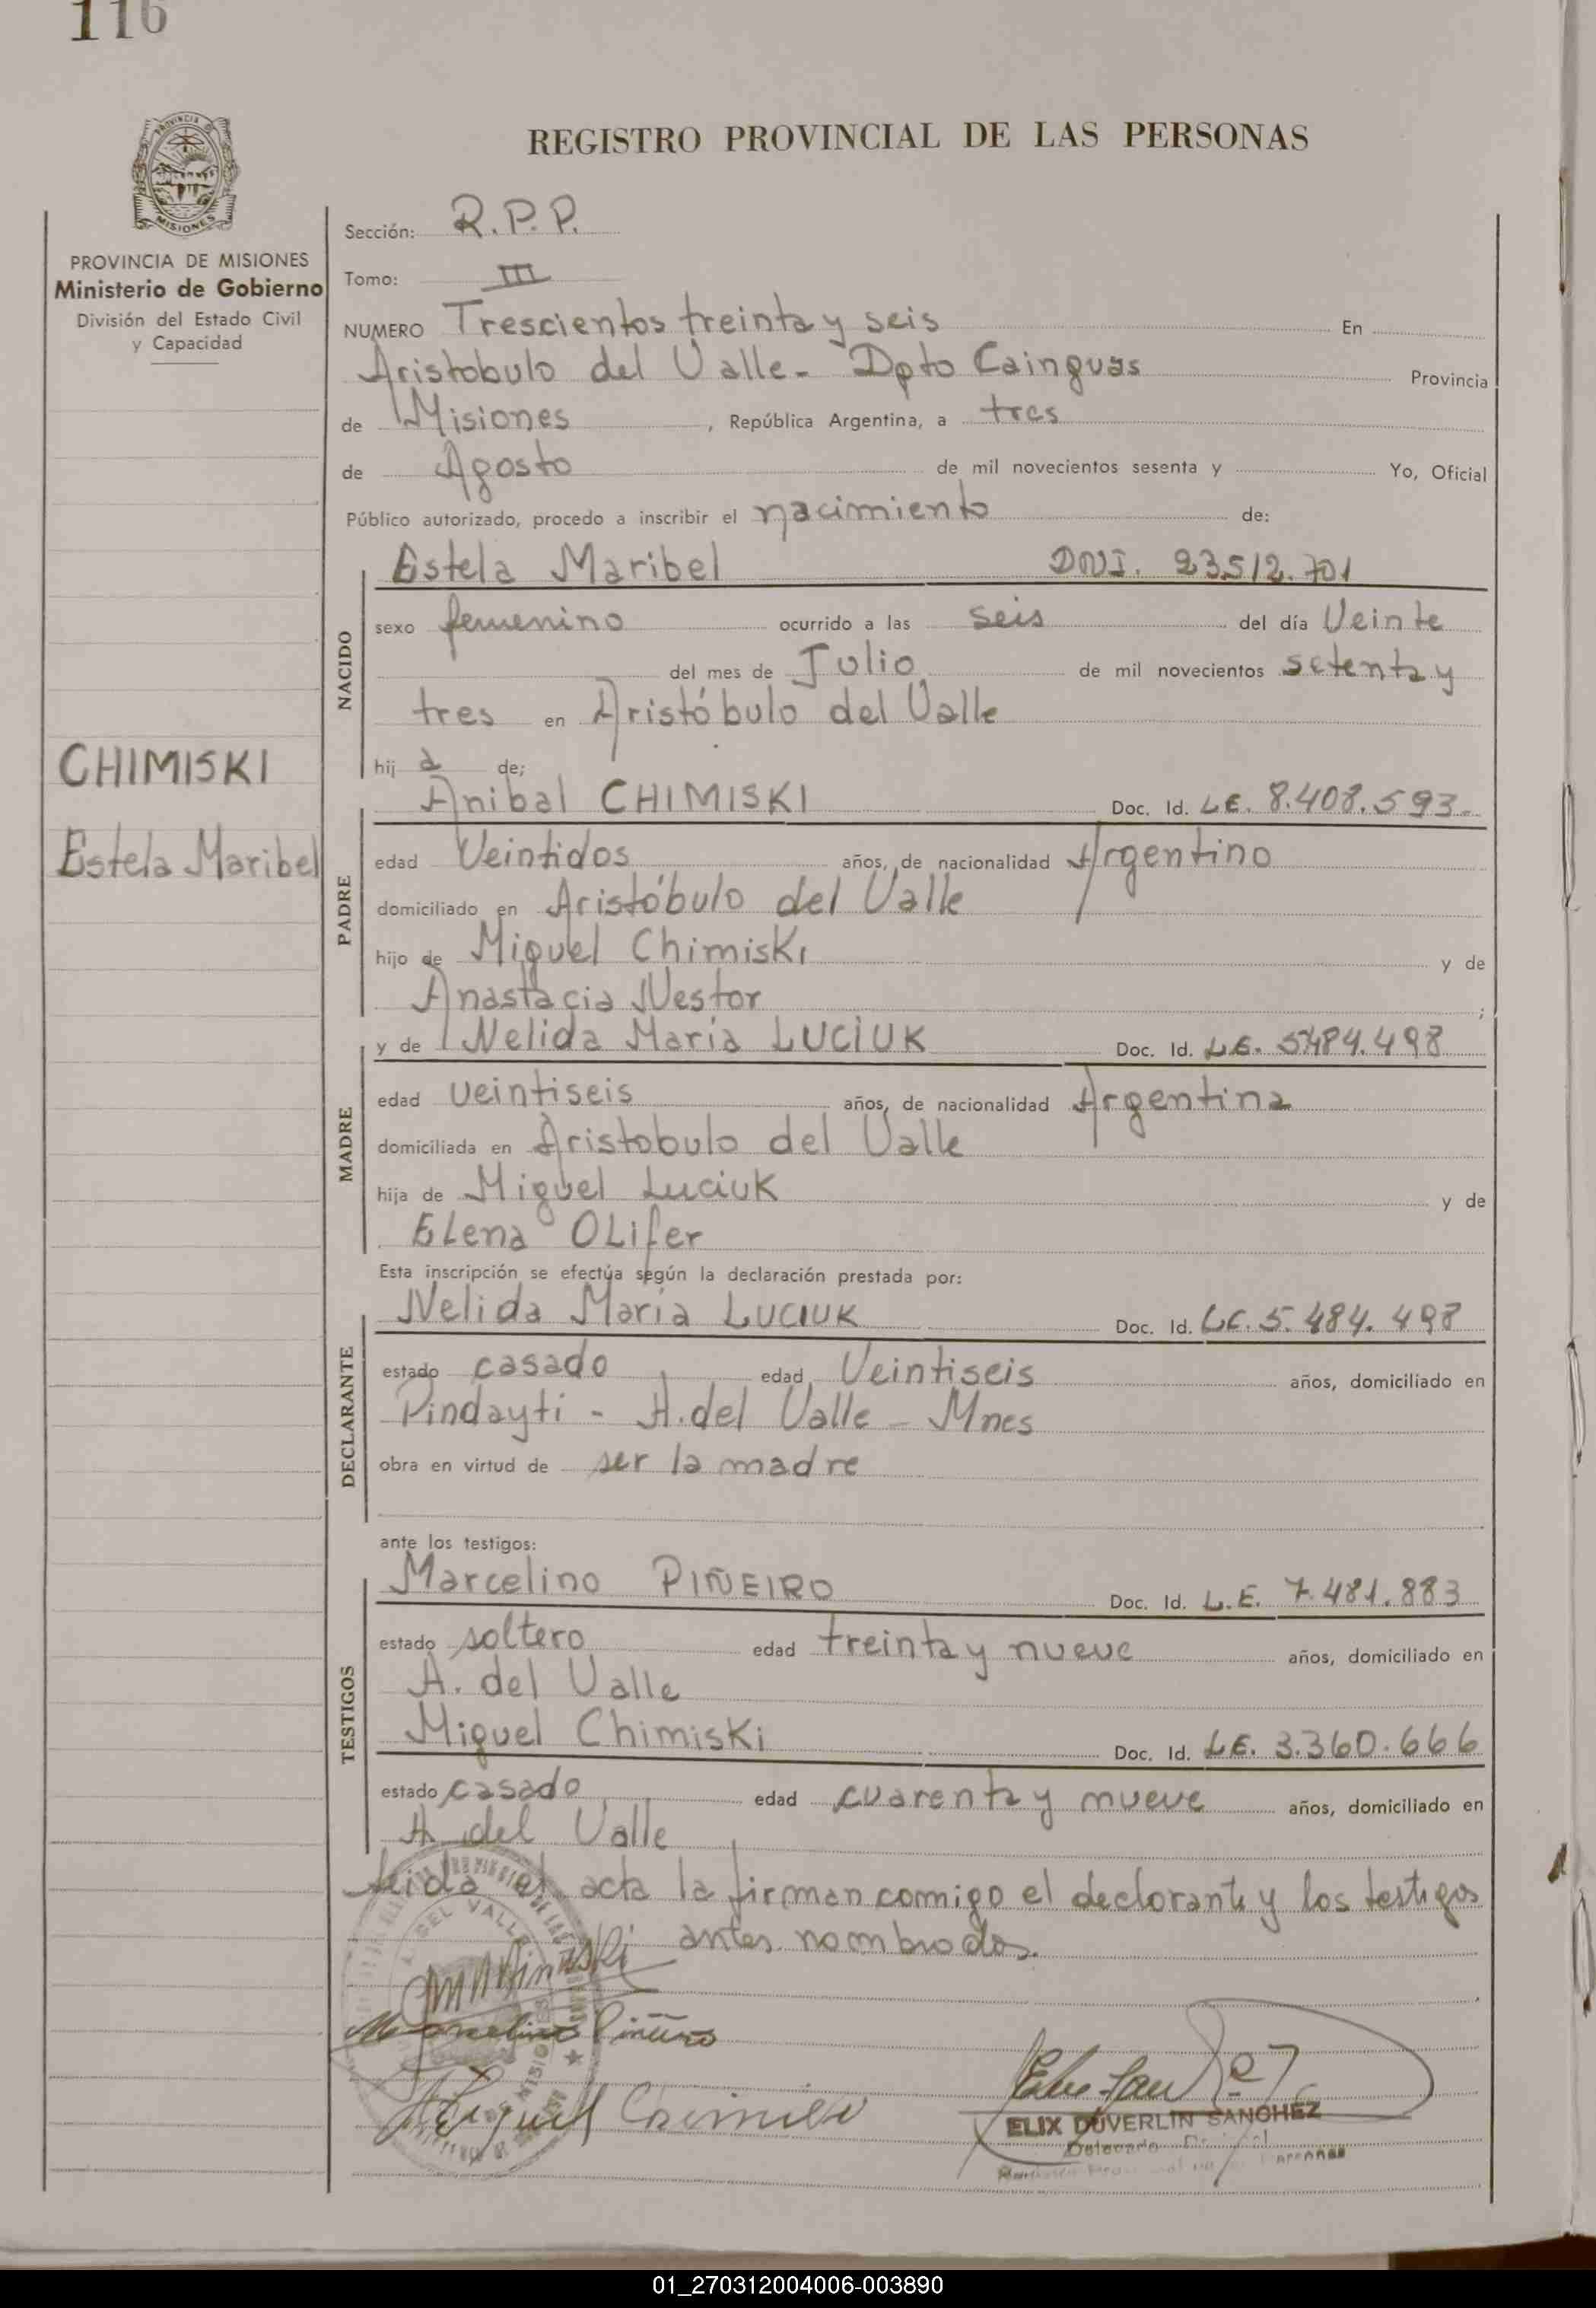 116
REGISTRO PROVINCIAL DE LAS PERSONAS
MISIONES
PROVINCIA DE MISIONES
Ministerio de Gobierno
División del Estado Civil
y Capacidad
CHIMISKI
Estela Maribel
Sección: R.P.P.
Tomo: III
NUMERO Trescientos treinta y seis En
Aristobulo del Valle - Dpto Cainguas Provincia
de Misiones , República Argentina, a tres
de Agosto de mil novecientos sesenta y Yo, Oficial
Público autorizado, procedo a inscribir el nacimiento de:
NACIDO
Estela Maribel DNI. 23512.701
sexo femenino ocurrido a las seis del día Veinte
del mes de Julio de mil novecientos setenta y
tres en Aristóbulo del Valle
hij a de;
PADRE
Anibal CHIMISKI Doc. Id. LE. 8.408.593.-
edad Veintidos años, de nacionalidad Argentino
domiciliado en Aristóbulo del Valle
hijo de Miguel Chimiski y de
Anastacia Nestor ;
MADRE
y de Nelida Maria LUCIUK Doc. Id. 5484.498
edad veintiseis años, de nacionalidad Argentina
domiciliada en Aristobulo del Valle
hija de Miguel Luciuk y de
Elena OLifer
Esta inscripción se efectúa según la declaración prestada por:
DECLARANTE
Nelida Maria LUCIUK Doc. Id. LC. 5.484.498
estado casado edad Veintiseis años, domiciliado en
Pindayti - A. del Valle - Mnes
obra en virtud de ser la madre
ante los testigos:
TESTIGOS
Marcelino PIÑEIRO Doc. Id. L.E. 7.481.883
estado soltero edad treinta y nueve años, domiciliado en
A. del Valle
Miguel Chimiski Doc. Id. LE. 3.360.666
estado casado edad cuarenta y nueve años, domiciliado en
A. del Valle
Leida el acta la firman conmigo el declarante y los testigos
antes nombrados.
Marcelino Piñeiro
Miguel
ELIX DUVERLIN SANCHEZ
01_270312004006-003890